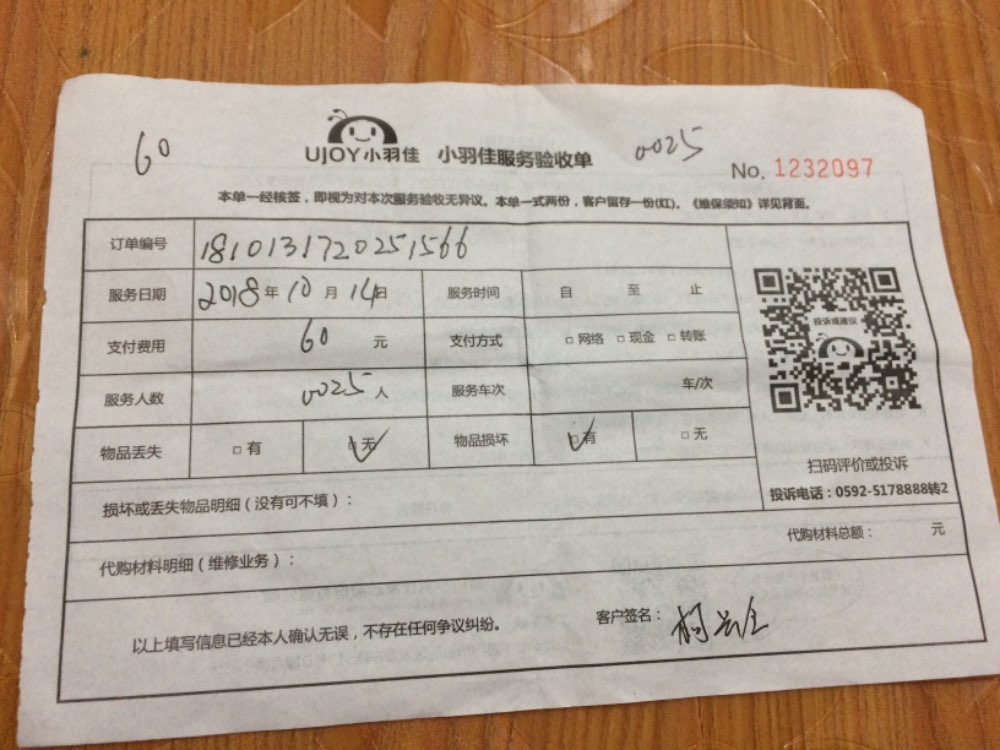 60
0025
UJOY小羽佳 小羽佳服务验收单
No. 1232097
本单一经核签，即视为对本次服务验收无异议。本单一式两份，客户留存一份(红)。《维保须知》详见背面。
订单编号 1810131720251566
服务日期 2018年10月14日 服务时间 自 至 止
投诉或建议
支付费用 60 元 支付方式 □网络 □现金 □转账
服务人数 0025人 服务车次 车/次
物品丢失 □有 □无 物品损坏 □有 □无
扫码评价或投诉
投诉电话：0592-5178888转2
损坏或丢失物品明细（没有可不填）：
代购材料总额： 元
代购材料明细（维修业务）：
以上填写信息已经本人确认无误，不存在任何争议纠纷。 客户签名：